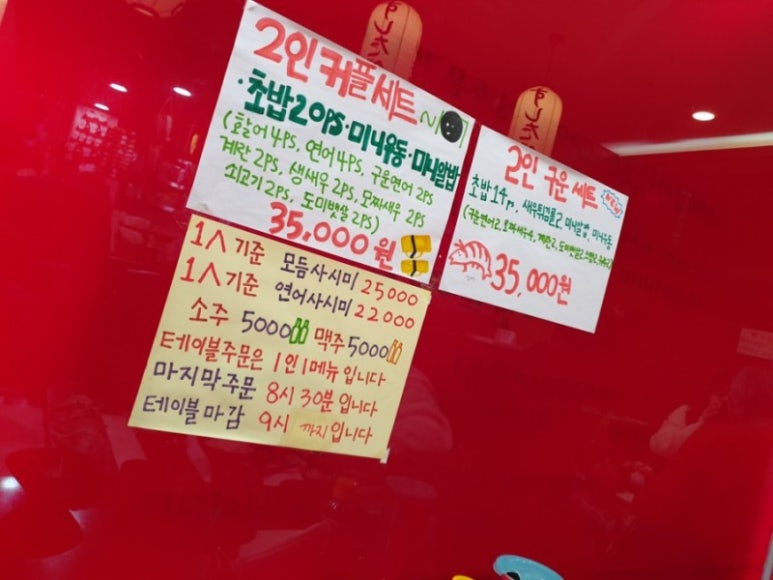 2인 커플세트
·초밥20ps·미니우동·미니알밥
(활어4ps, 연어4ps, 구운연어 2ps
계란 2ps, 생새우 2ps, 모짜새우 2ps
쇠고기 2ps, 도미뱃살 2ps)
35,000원
2인 구운세트
초밥 14p, 새우튀김롤2, 미니알밥, 미니우동
35,000원
1人기준 모듬사시미 25000
1人기준 연어사시미 22000
소주 5000 맥주 5000
테이블주문은 1인1메뉴입니다
마지막주문 8시 30분입니다
테이블마감 9시 까지입니다